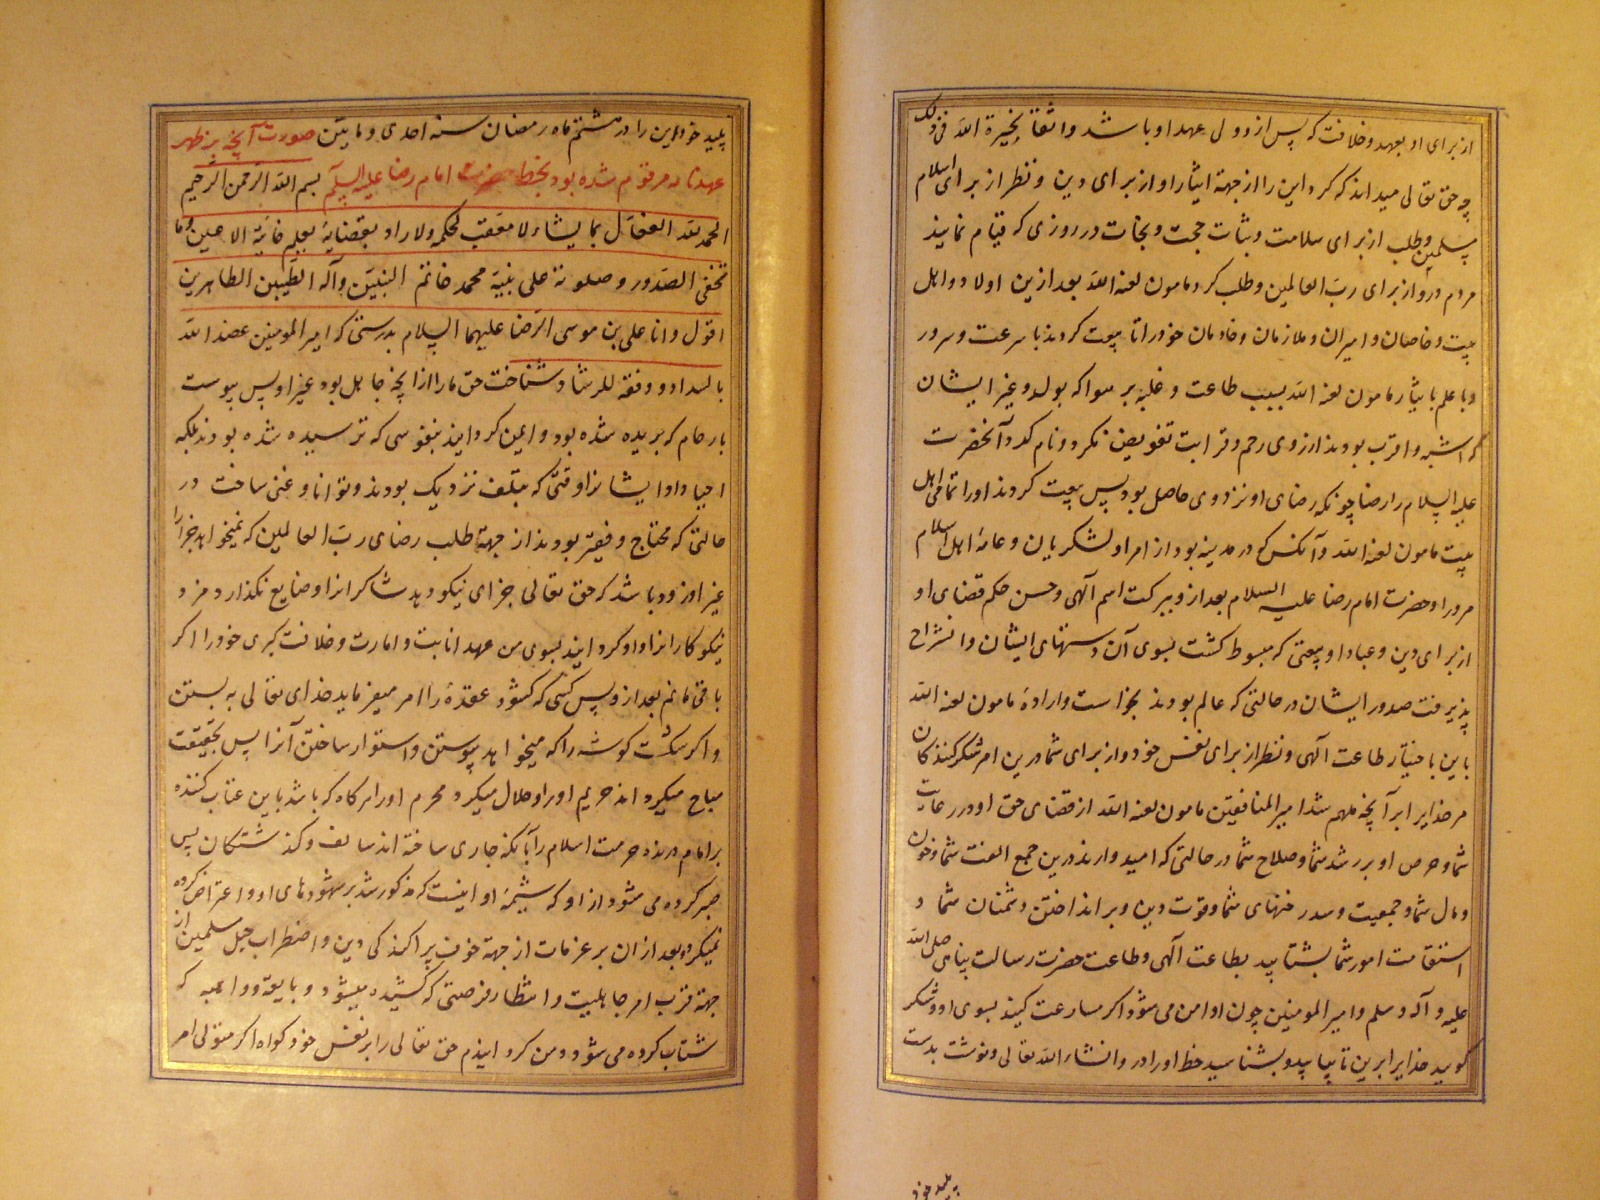 از برای او بعهد و خلافت که پس از وولی عهد او باشد واثقا بخیرة الله فی ذلک
چه حق تعالی میداند که کرد این را از جهة ایثار او از برای دین و نظر از برای اسلام
مسلمین و طلب از برای سلامت و ثبات حجت و نجات در روزی که قیام نمایند
مردم درو از برای رب العالمین و طلب کرد مامون لعنه الله بعد ازین اولاد و اهل
بیت و خاصان و امیران و ملازمان و خادمان خود را تا بیعت کردند با سرعت و سرور
و با علم بایثار مامون لعنه الله بسبب طاعت و غلبه بر هوا که بولد و غیر ایشان
که اشبه و اقرب بودند از روی رحم و قرابت تفویض نکرد و نام کرد آنحضرت
علیه السلام را رضا چونکه رضای او نزد وی حاصل بود پس بیعت کردند او را تمامی اهل
بیت مامون لعنه الله و آنکس که در مدینه بود از امرا و لشکریان و عامه اهل اسلام
مرورا و حضرت امام رضا علیه السلام بعد ازو ببرکت اسم آلهی و حسن حکم قضای او
از برای دین و عباد او بیعتی که مبسوط کشت بسوی آن دستهای ایشان و انشراح
پذیرفت صدور ایشان در حالتی که عالم بودند بخواست و اراده مامون لعنه الله
باین باختیار طاعت آلهی و نظر از برای نفس خود و از برای شما درین امر شکر کنندکان
مر خدایرا بر آنچه ملهم شد امیر المنافقین مامون لعنه الله از قضای حق او در رعایت
شما و حرص او بر رشد شما و صلاح شما در حالتی که امیدوارند درین جمع الفت شما و خون
و مال شما و جمعیت و سدر خنهای شما و قوت دین و بر انداختن دشمنان شما و
استقامت امور شما بشتابید بطاعت آلهی و طاعت حضرت رسالت پناهی صلی الله
علیه و آله و سلم و امیر المومنین چون او امن می شود اکر مسارعت کنید بسوی او و شکر
کویید خدایرا برین تا بیابید و بشناسید حظ او را در و انشاء الله تعالی و نوشت بدست
پلید خود
پلید خود این را در هشتم ماه رمضان سنه احدی و ماتین صورت آنچه بر ظهر
عهدنامه مرقوم شده بود بخط حضرت امام رضا علیه السلام بسم الله الرحمن الرحیم
الحمد لله الفعال بما یشاء لا معقب لحکمه ولا راد لقضایه یعلم خائنة الاعین وما
تخفی الصدور و صلوته علی نبیه محمد خاتم النبیین وآله الطیبین الطاهرین
اقول وانا علی بن موسی الرضا علیهما السلام بدرستی که امیر المومنین عضد الله
بالسداد و وفقه للرشاد شناخت حق ما را از آنچه جاهل بود غیر او پس پیوست
بارحام که بریده شده بود و ایمن کردانید بنفوسی که ترسیده شده بودند بلکه
احیا داد ایشانرا وقتی که بتلف نزدیک بودند و توانا و غنی ساخت در
حالتی که محتاج و فقیر بودند از جهة طلب رضای رب العالمین که نمیخواهد جزا را
غیر او زود باشد که حق تعالی جزای نیکو دهد شاکرانرا و ضایع نکذارد مزد
نیکوکارانرا و او کردانید بسوی من عهد انابت و امارت و خلافت کبری خود را اکر
باقی مانم بعد ازو پس کسی که کشود عقدهٔ را امر میفرماید خدای تعالی به بستن
و اکر شکست کوشه را که میخواهد پیوستن و استوار ساختن آنرا پس بتحقیقت
مباح میکرداند حریم او را و حلال میکرد محرم او را هرکاه که باشد باین عتاب کننده
بر امام درنده حرمت اسلام را بآنکه جاری ساخته اند سالف و کذشتکان پس
صبر کرده می شود از او که شیمهٔ او اینست که مذکور شد بر سهودهای او و اعتراض کرده
نمیکرد بعد از ان بر عزمات از جهة خوف پراکندکی دین و اضطراب حبل مسلمین از
جهة قرب امر جاهلیت و انتظار فرصتی که کشیده میشود و بایقه و داعیه که
شتاب کرده می شود و من کردانیدم حق تعالی را بر نفس خود کواه اکر متولی امر